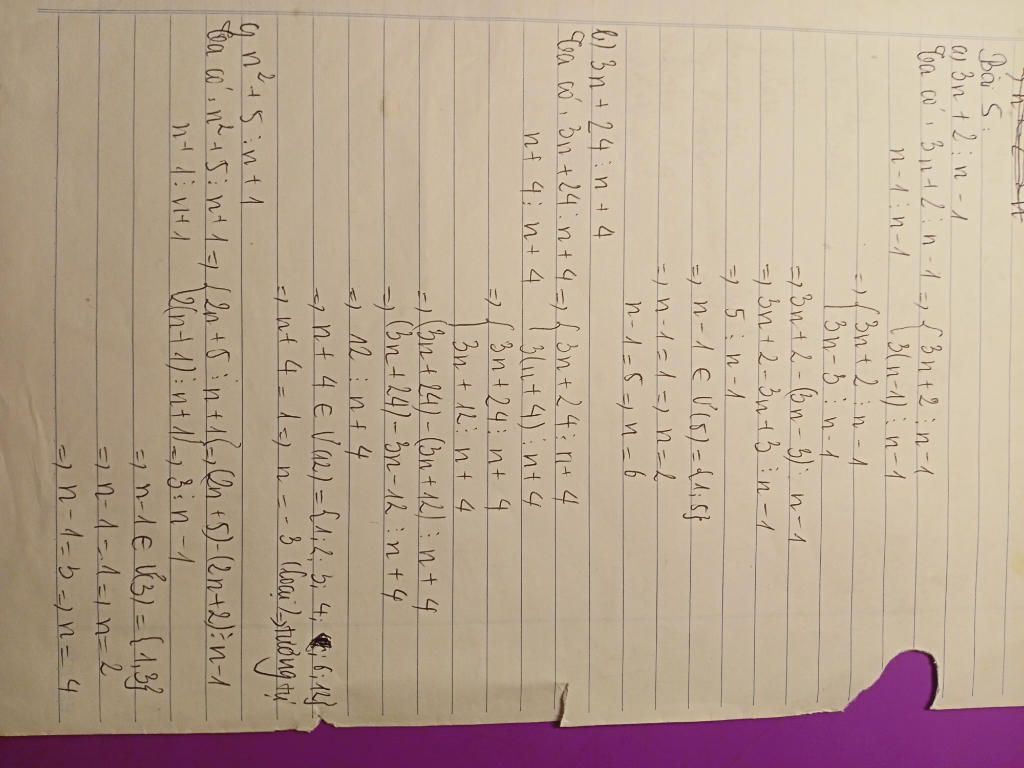 Bài 5:
a) 3n + 2 ⋮ n - 1
Ta có: 3n + 2 ⋮ n - 1 => { 3n + 2 ⋮ n - 1
n - 1 ⋮ n - 1 { 3(n - 1) ⋮ n - 1
=> { 3n + 2 ⋮ n - 1
{ 3n - 3 ⋮ n - 1
=> 3n + 2 - (3n - 3) ⋮ n - 1
=> 3n + 2 - 3n + 3 ⋮ n - 1
=> 5 ⋮ n - 1
=> n - 1 ∈ Ư(5) = {1; 5}
=> n - 1 = 1 => n = 2
n - 1 = 5 => n = 6
b) 3n + 24 ⋮ n + 4
Ta có: 3n + 24 ⋮ n + 4 => { 3n + 24 ⋮ n + 4
n + 4 ⋮ n + 4 { 3(n + 4) ⋮ n + 4
=> { 3n + 24 ⋮ n + 4
{ 3n + 12 ⋮ n + 4
=> (3n + 24) - (3n + 12) ⋮ n + 4
=> (3n + 24) - 3n - 12 ⋮ n + 4
=> 12 ⋮ n + 4
=> n + 4 ∈ Ư(12) = {1; 2; 3; 4; 6; 12}
=> n + 4 = 1 => n = -3 (loại), tương tự
n² + 5 ⋮ n + 1
Ta có: n² + 5 ⋮ n + 1 => { 2n + 5 ⋮ n + 1 { => (2n + 5) - (2n + 2) ⋮ n - 1
n + 1 ⋮ n + 1 { 2(n + 1) ⋮ n + 1 => 3 ⋮ n - 1
=> n - 1 ∈ Ư(3) = {1; 3}
=> n - 1 = 1 => n = 2
=> n - 1 = 3 => n = 4